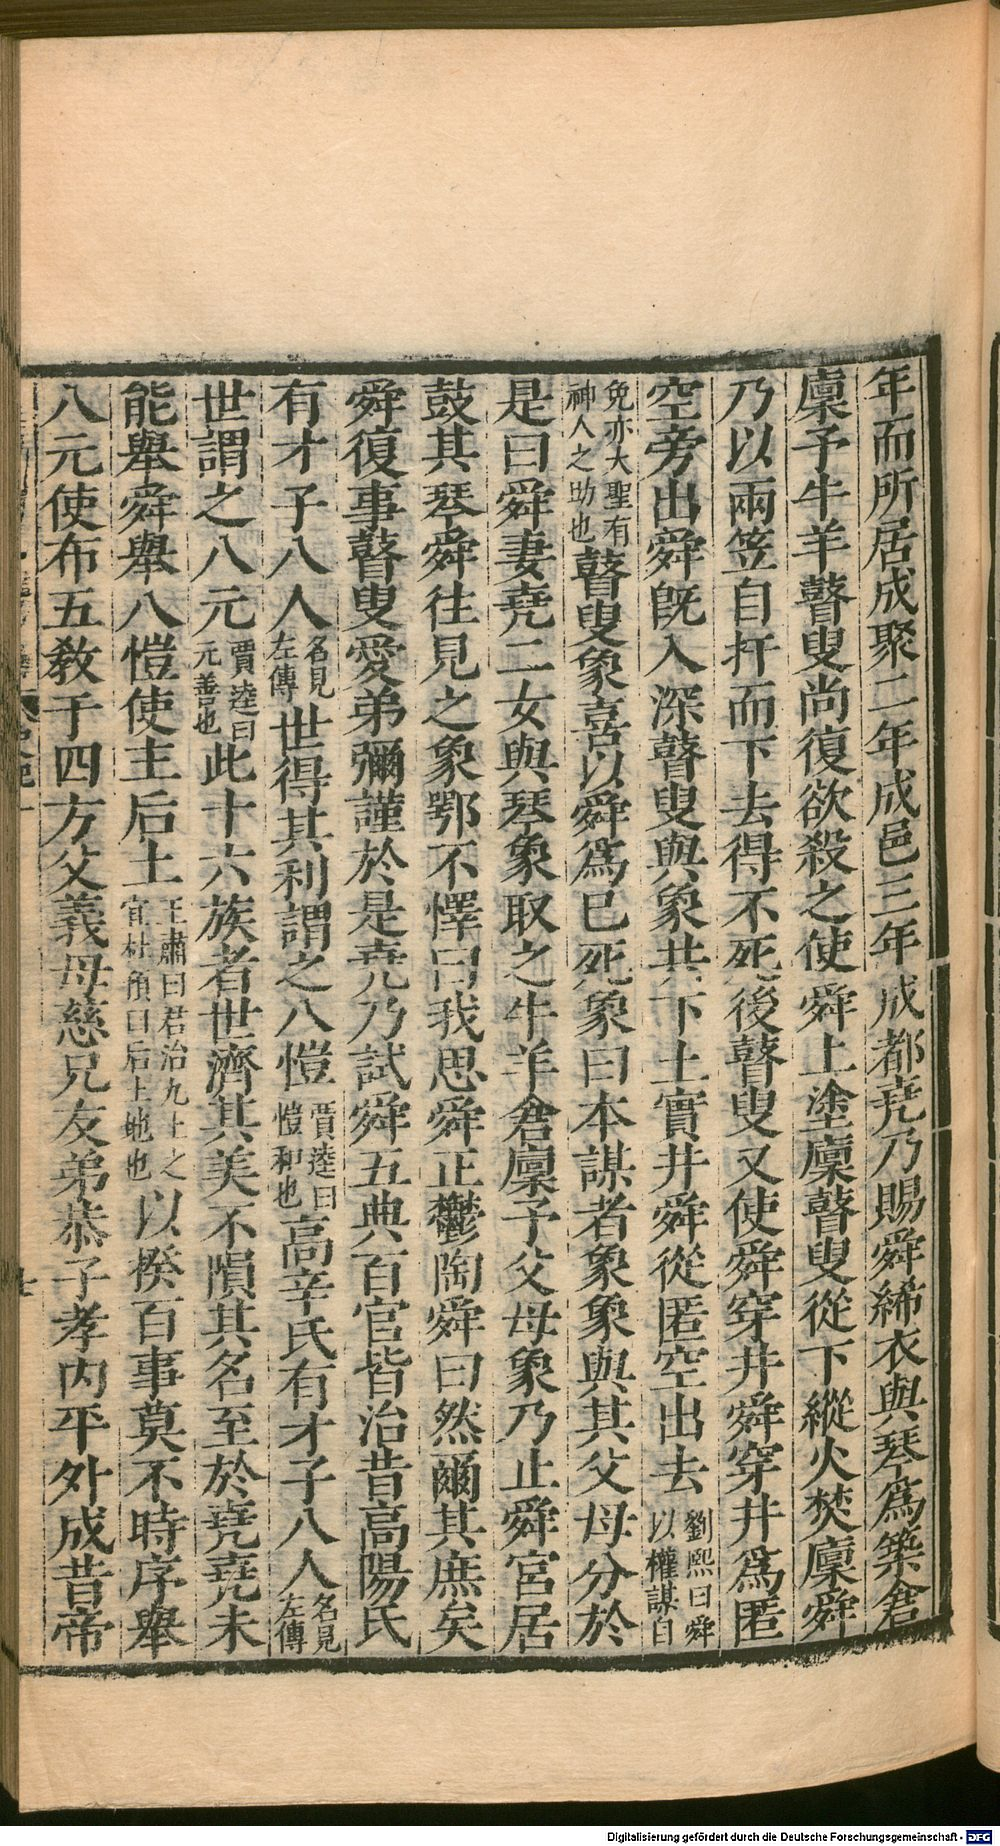 年而所居成聚二年成邑三年成都堯乃賜舜絺衣與琴爲築倉
廩予牛羊瞽叟尚復欲殺之使舜上塗廩瞽叟從下縱火焚廩舜
乃以兩笠自扞而下去得不死後瞽叟又使舜穿井舜穿井爲匿
空旁出舜旣入深瞽叟與象共下土實井舜從匿空出去劉熙曰舜以權謀自
免亦大聖有神人之助也瞽叟象喜以舜爲已死象曰本謀者象象與其父母分於
是曰舜妻堯二女與琴象取之牛羊倉廩予父母象乃止舜宮居
鼓其琴舜往見之象鄂不懌曰我思舜正鬱陶舜曰然爾其庶矣
舜復事瞽叟愛弟彌謹於是堯乃試舜五典百官皆治昔高陽氏
有才子八人名見左傳世得其利謂之八愷賈逵曰愷和也高辛氏有才子八人名見左傳
世謂之八元賈逵曰元善也此十六族者世濟其美不隕其名至於堯堯未
能舉舜舉八愷使主后土王肅曰君治九土之宜杜預曰后土地也以揆百事莫不時序舉
八元使布五敎于四方父義母慈兄友弟恭子孝内平外成昔帝
Digitalisierung gefördert durch die Deutsche Forschungsgemeinschaft - DFG